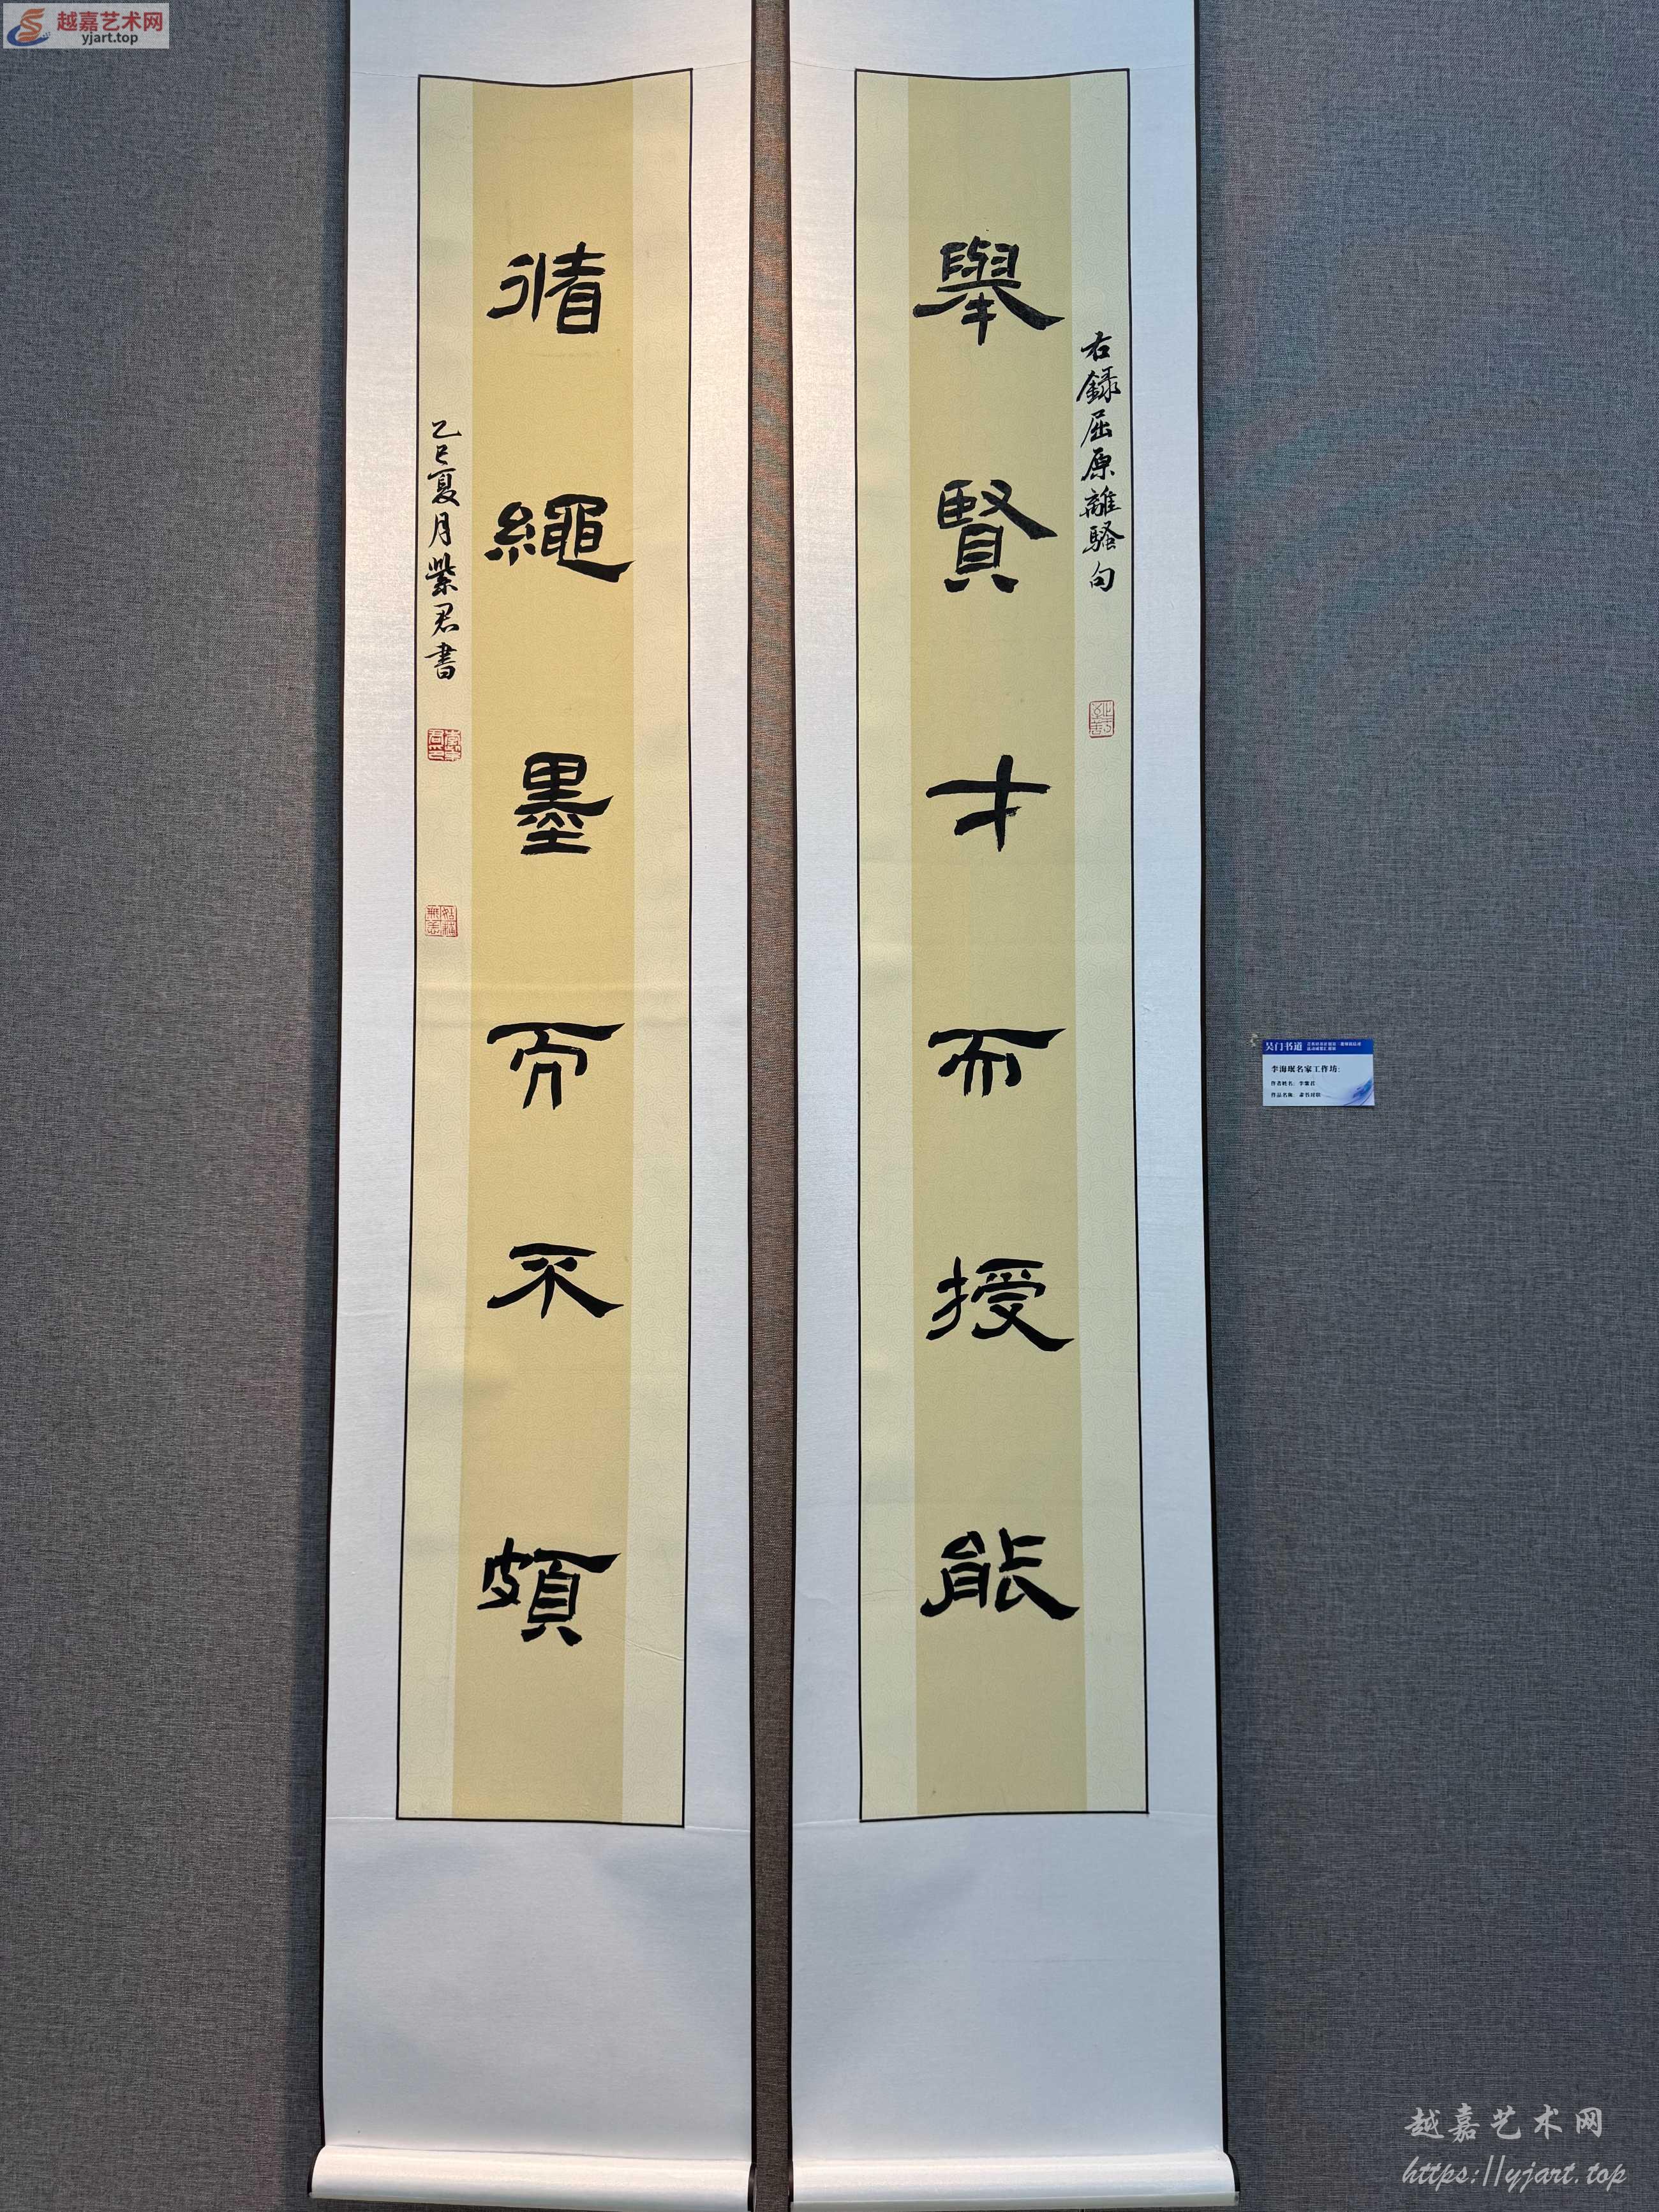 越嘉艺术网
yjart.top
右錄屈原離騷句
舉賢才而授能
循繩墨而不頗
乙巳夏月紫君書
吴门书道
李海珉名家工作坊:
作者姓名: 李紫君
作品名称: 隶书对联
越嘉艺术网
https://yjart.top